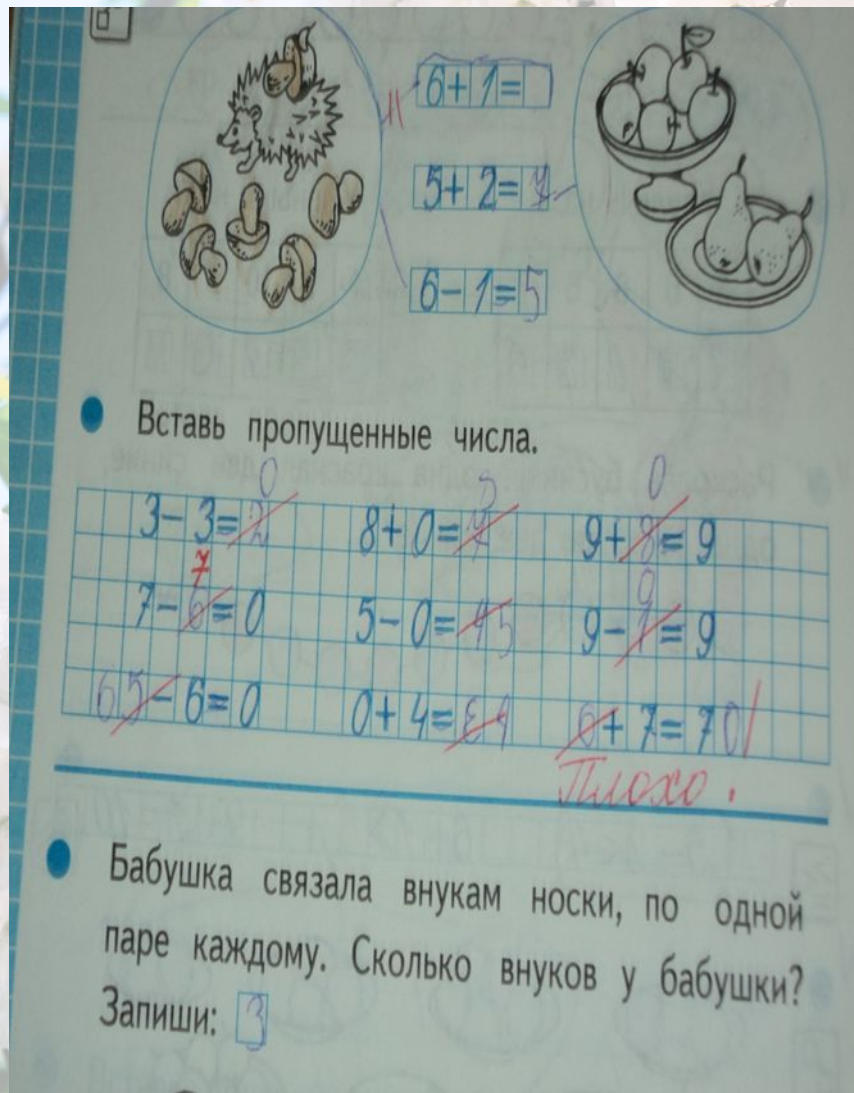 6+1=
5+2=7
6-1=5
Вставь пропущенные числа.
0 0
3-3=2 8+0=7 9+8=9
7 0
7-6=0 5-0=45 9-1=9
65-6=0 0+4= 4 6+7=70
Плохо.
Бабушка связала внукам носки, по одной
паре каждому. Сколько внуков у бабушки?
Запиши: 3